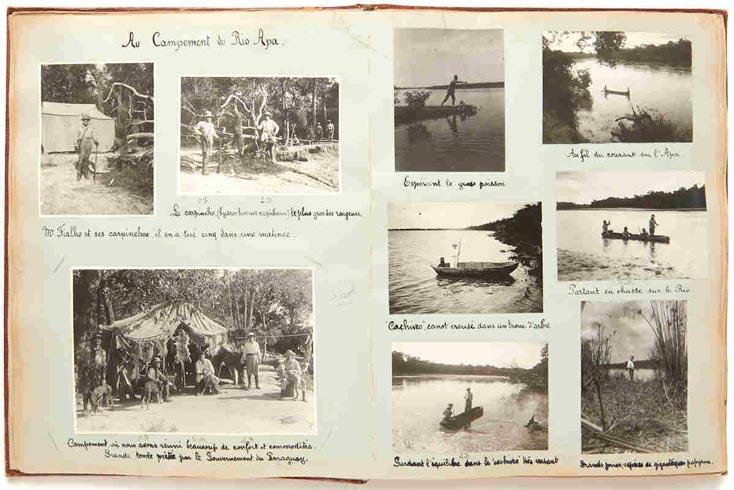 Au Campement du Rio Apa.
Le carpincho, (hydrochoerus capibara) le plus gros des rongeurs.
Mr Fialho et ses carpinchos, il en a tué cinq dans une matinée.
Campement où nous avons réuni beaucoup de confort et commodités.
Grande tente prêtée par le Gouvernement du Paraguay.
Esperant le gros poisson
Au fil du courant sur l'Apa.
"Cachiveo", canot creusé dans un tronc d'arbre.
Partant en chasse sur le Rio
Gardant l'équilibre dans le "cachiveo" très versant
Grands joncs, espèces de gigantesques papyrus.